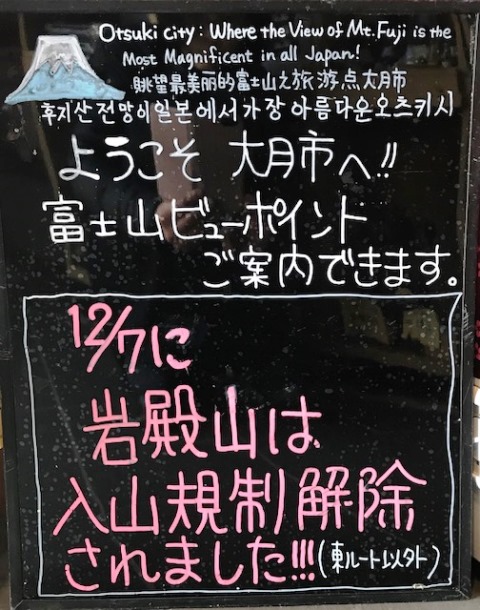 Otsuki city: Where the View of Mt. Fuji is the
Most Magnificent in all Japan!
眺望最美丽的富士山之旅游点大月市
후지산 전망이 일본에서 가장 아름다운 오츠키시
ようこそ 大月市へ!!
富士山ビューポイント
ご案内できます。
12/7に
岩殿山は
入山規制解除
されました!!!(東ルート以外)